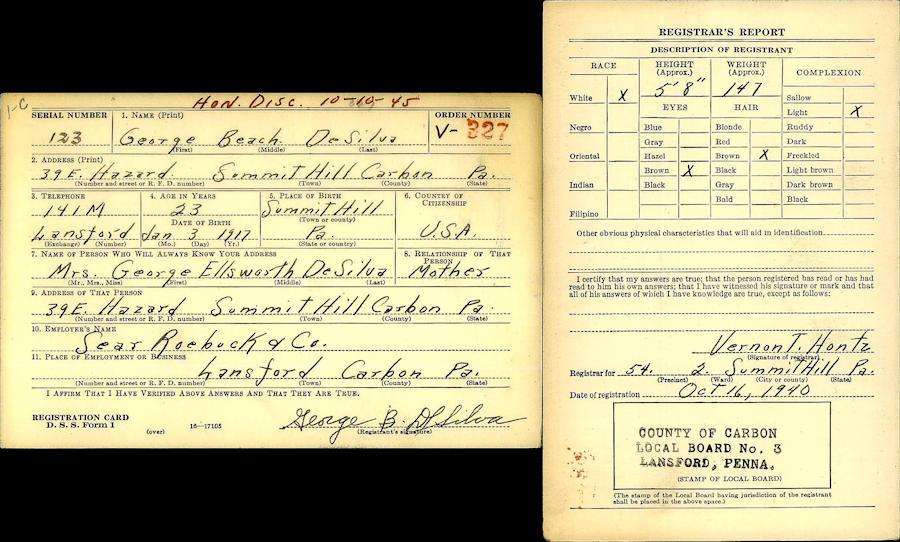 1-C
Hon. Disc. 10-10-45
SERIAL NUMBER 1. NAME (Print) ORDER NUMBER
123 George Beach DeSilva V-327
(First) (Middle) (Last)
2. ADDRESS (Print)
39 E. Hazard Summit Hill Carbon Pa.
(Number and street or R. F. D. number) (Town) (County) (State)
3. TELEPHONE 4. AGE IN YEARS 5. PLACE OF BIRTH 6. COUNTRY OF CITIZENSHIP
141M 23 Summit Hill
DATE OF BIRTH (Town or county)
Lansford Jan 3 1917 Pa. U.S.A.
(Exchange) (Number) (Mo.) (Day) (Yr.) (State or country)
7. NAME OF PERSON WHO WILL ALWAYS KNOW YOUR ADDRESS 8. RELATIONSHIP OF THAT PERSON
Mrs. George Ellsworth DeSilva Mother
(Mr., Mrs., Miss) (First) (Middle) (Last)
9. ADDRESS OF THAT PERSON
39 E. Hazard Summit Hill Carbon Pa.
(Number and street or R. F. D. number) (Town) (County) (State)
10. EMPLOYER'S NAME
Sear Roebuck & Co.
11. PLACE OF EMPLOYMENT OR BUSINESS
Lansford Carbon Pa.
(Number and street or R. F. D. number) (Town) (County) (State)
I AFFIRM THAT I HAVE VERIFIED ABOVE ANSWERS AND THAT THEY ARE TRUE.
REGISTRATION CARD
D. S. S. Form 1 George B. DeSilva
(over) 16—17105 (Registrant's signature)
REGISTRAR'S REPORT
DESCRIPTION OF REGISTRANT
RACE HEIGHT (Approx.) WEIGHT (Approx.) COMPLEXION
5'8" 147
White X EYES HAIR Sallow
Light X
Negro Blue Blonde Ruddy
Gray Red Dark
Oriental Hazel Brown X Freckled
Brown X Black Light brown
Indian Black Gray Dark brown
Bald Black
Filipino
Other obvious physical characteristics that will aid in identification
I certify that my answers are true; that the person registered has read or has had
read to him his own answers; that I have witnessed his signature or mark and that
all of his answers of which I have knowledge are true, except as follows:
Vernon T. Hontz
(Signature of registrar)
Registrar for 54. 2. Summit Hill Pa.
(Precinct) (Ward) (City or county) (State)
Date of registration Oct 16, 1940
COUNTY OF CARBON
LOCAL BOARD No. 3
LANSFORD, PENNA.
(STAMP OF LOCAL BOARD)
(The stamp of the Local Board having jurisdiction of the registrant
shall be placed in the above space.)